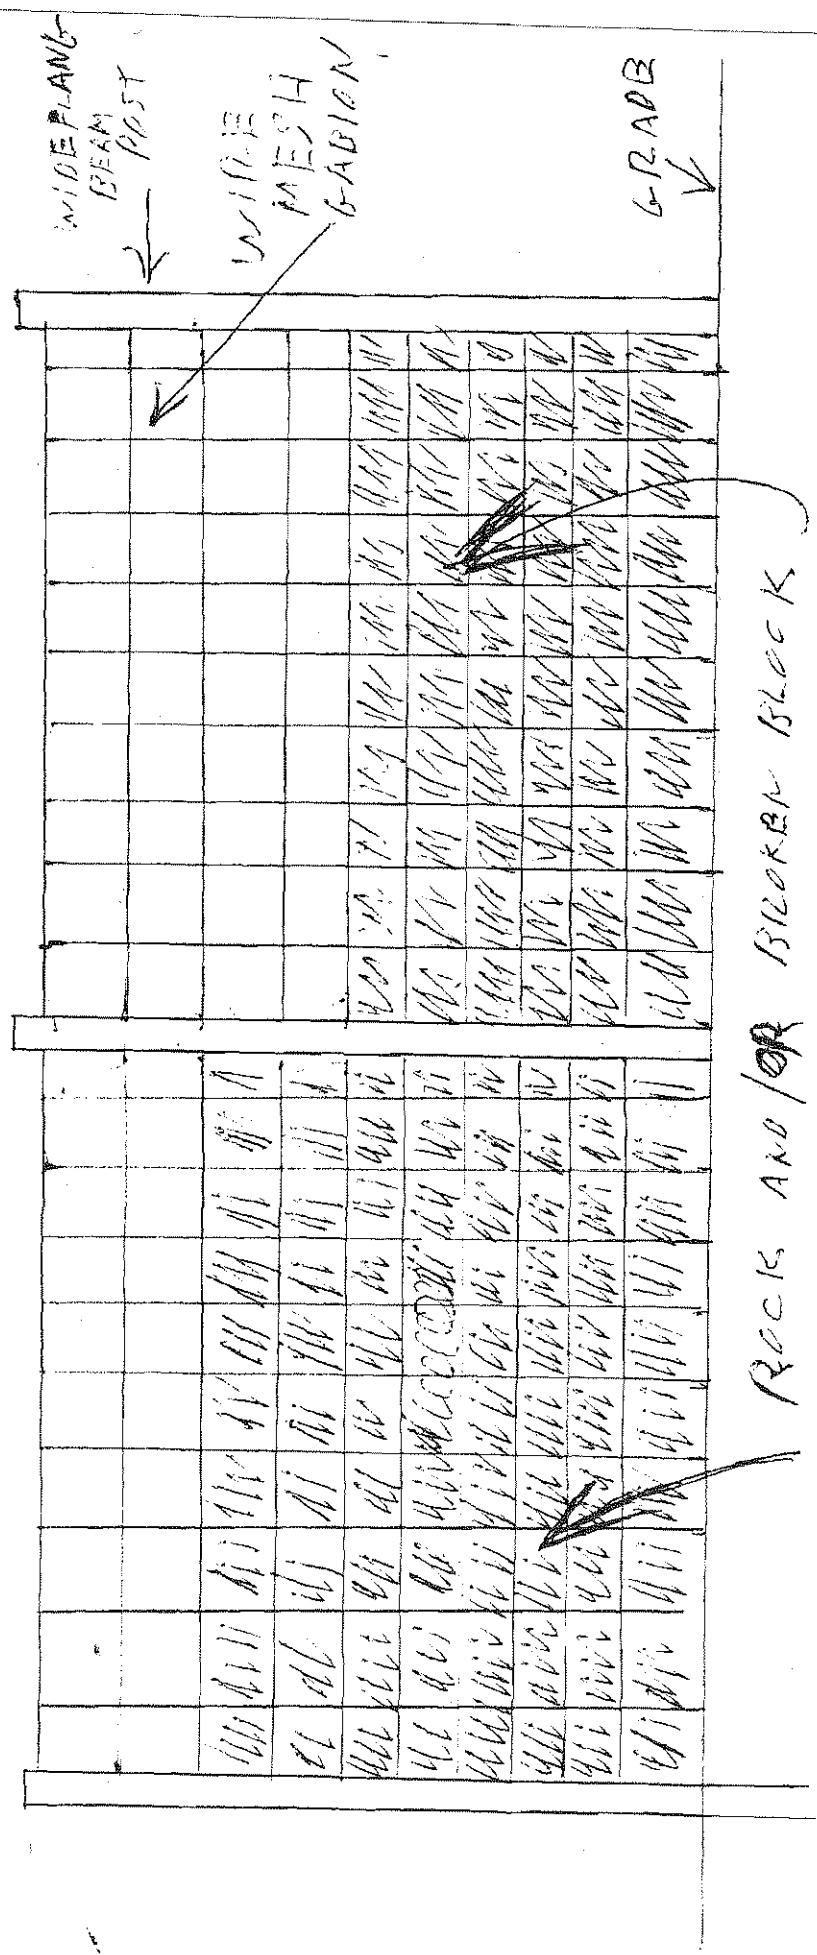 WIDEFLANG
BEAM
POST
WIRE
MESH
GABION
GRADE
ROCK AND/OR BROKEN BLOCK